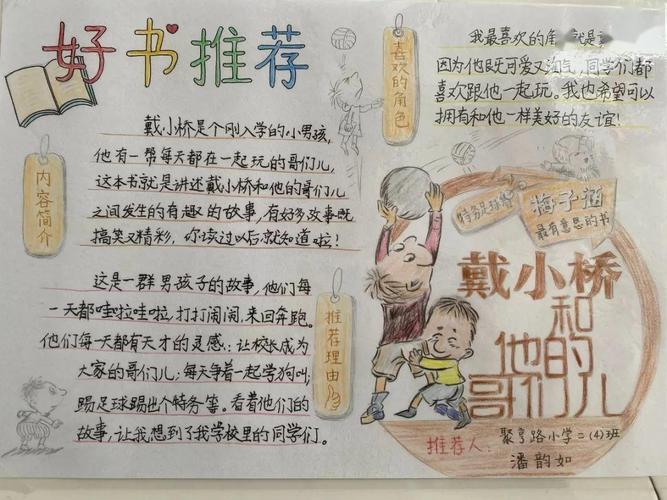 好书推荐
内容简介
戴小桥是个刚入学的小男孩,
他有一帮每天都在一起玩的哥们儿,
这本书就是讲述戴小桥和他的哥们儿
之间发生的有趣的故事,有好多故事既
搞笑又精彩,你读过以后就知道啦!
推荐理由
这是一群男孩子的故事,他们每
一天都哇啦哇啦,打打闹闹,来回奔跑。
他们每一天都有天才的灵感:让校长成为
大家的哥们儿;每天争着一起学狗叫,
踢足球踢出个特务等。看着他们的
故事,让我想到了我学校里的同学们。
喜欢的角色
我最喜欢的角 就是
因为他既可爱又淘气,同学们都
喜欢跟他一起玩。我也希望可以
拥有和他一样美好的友谊!
特务足球赛
梅子涵
最有意思的书
戴小桥
和
他的
哥们儿
推荐人:聚亨路小学二(4)班
潘韵如